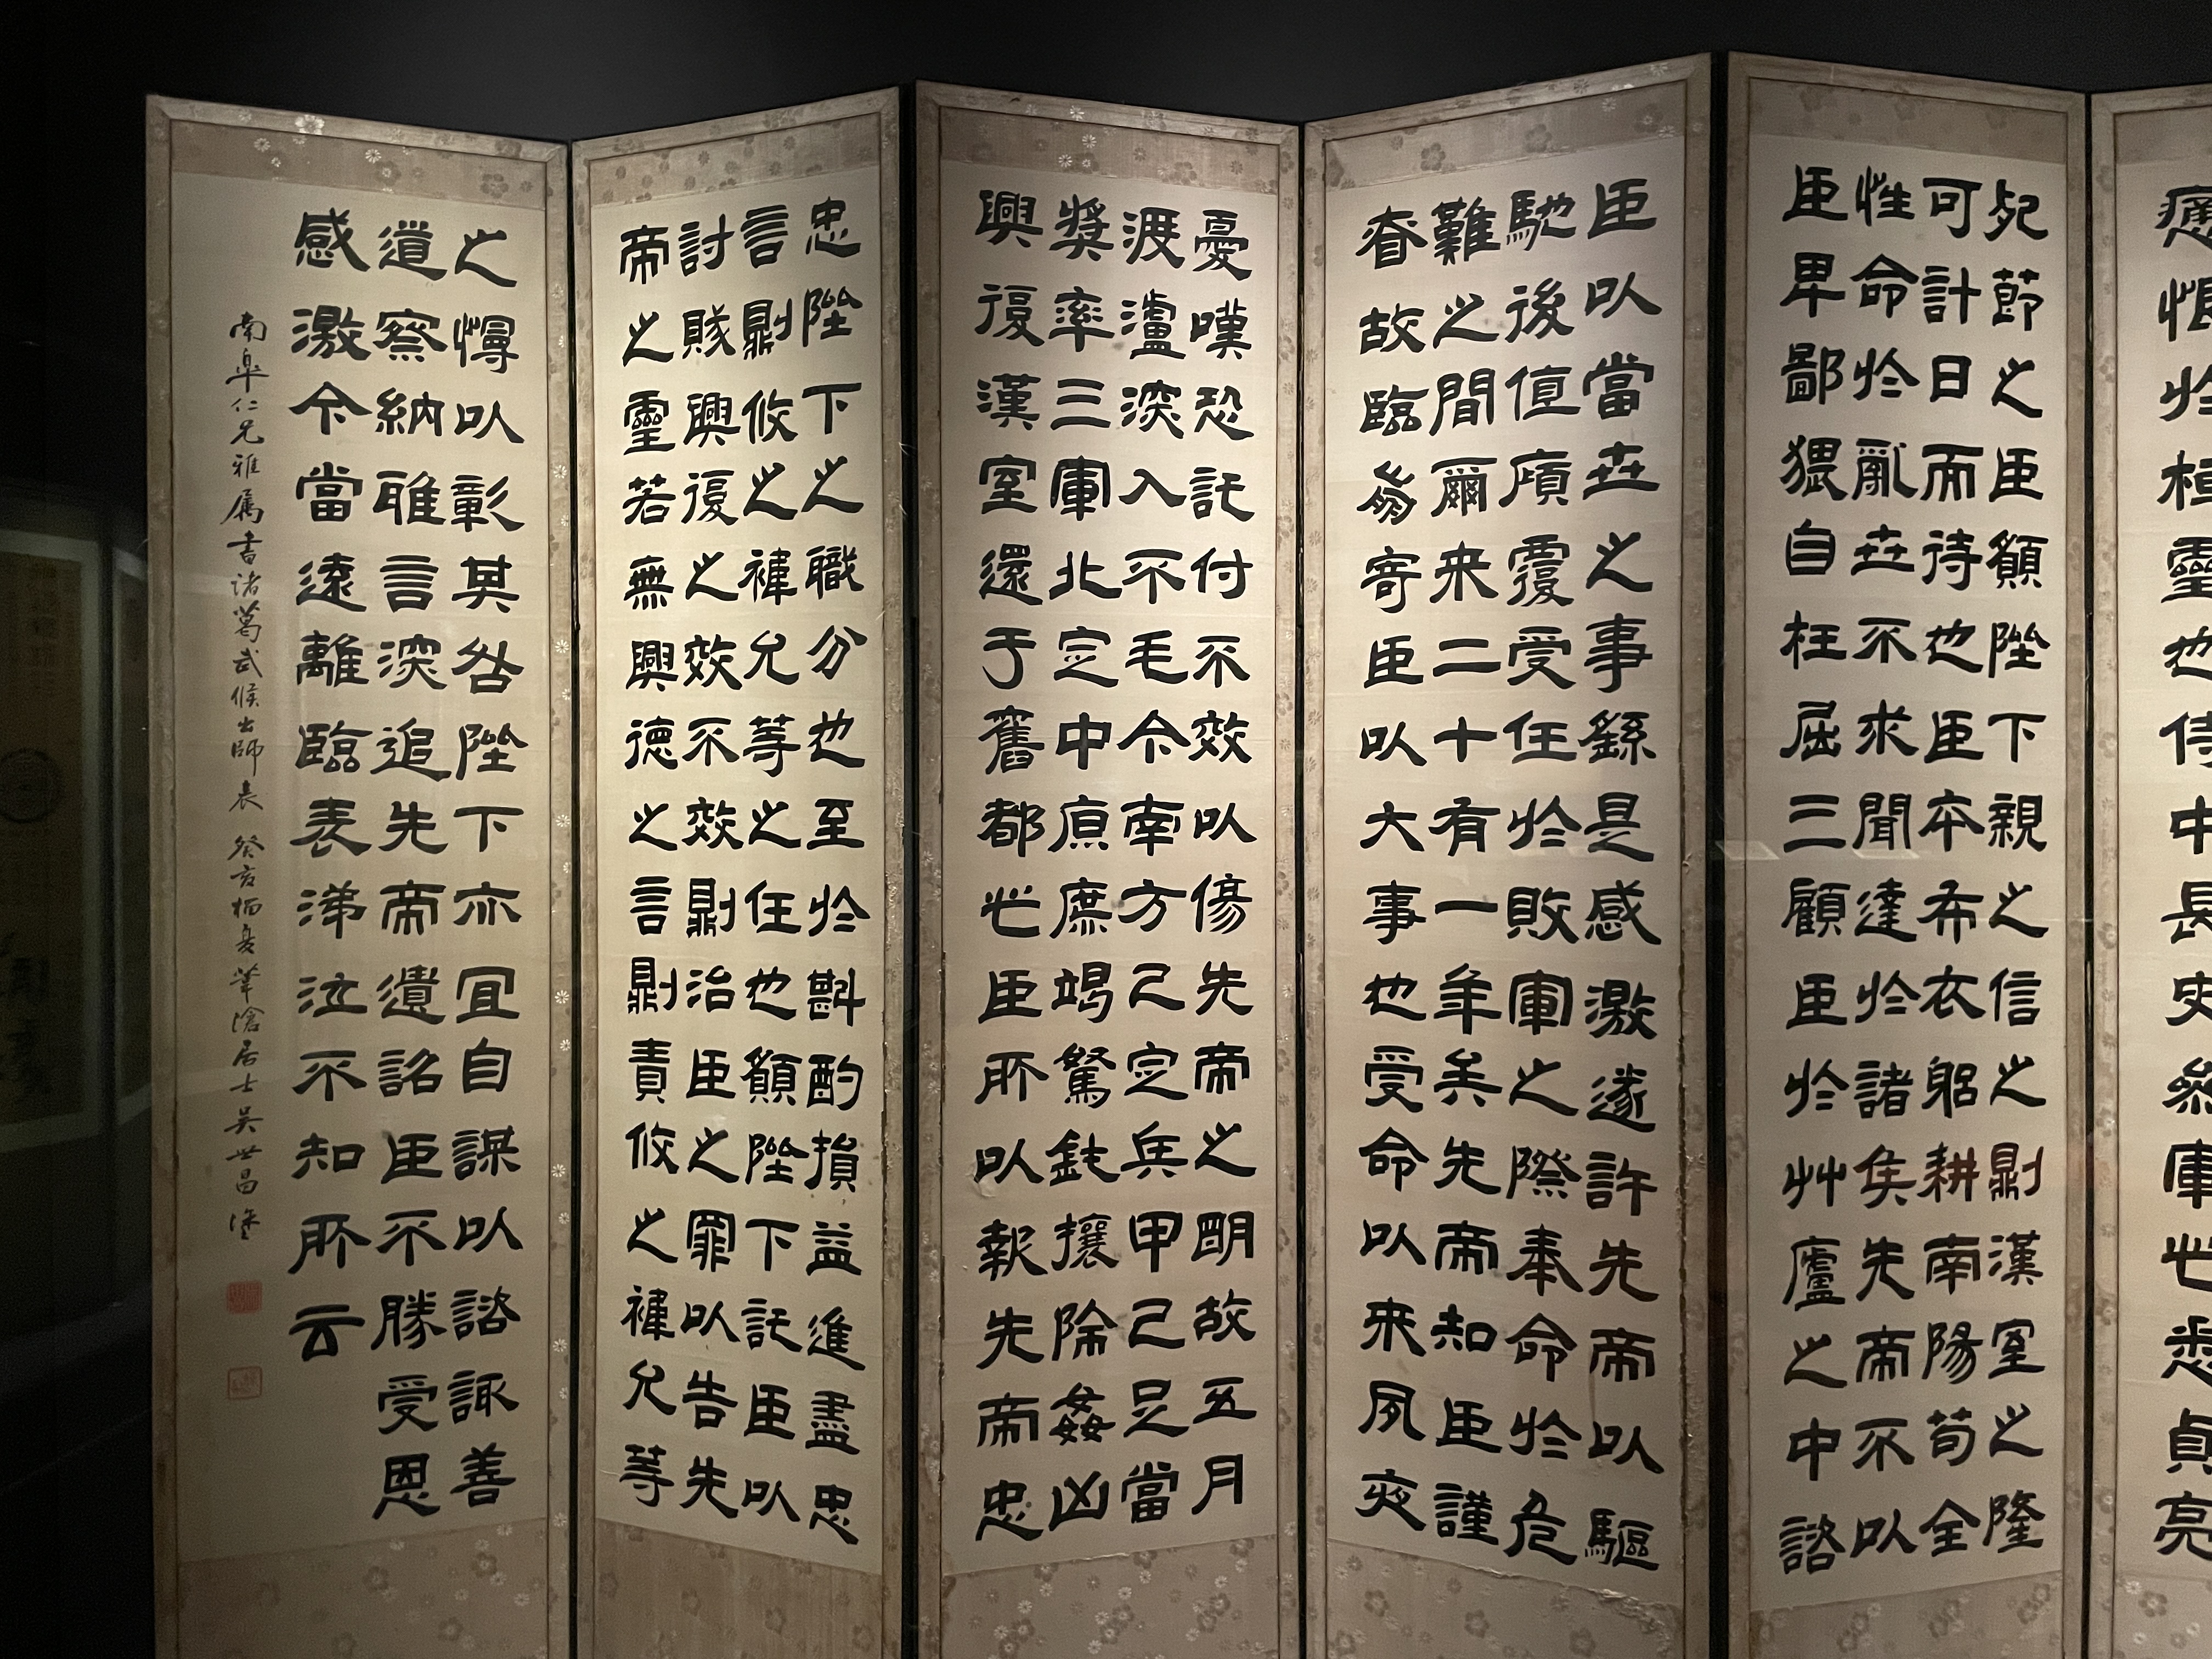 痛恨於桓靈也侍中長史參軍此悉貞亮
死節之臣願陛下親之信之則漢室之隆
可計日而待也臣本布衣躬耕南陽苟全
性命於亂世不求聞達於諸侯先帝不以
臣卑鄙猥自枉屈三顧臣於艸廬之中諮
臣以當世之事繇是感激遂許先帝以驅
馳後值傾覆受任於敗軍之際奉命於危
難之間爾来二十有一年矣先帝知臣謹
昚故臨崩寄臣以大事也受命以来夙夜
憂嘆恐託付不效以傷先帝之明故五月
渡瀘深入不毛今南方已定兵甲已足當
獎率三軍北定中原庶竭駑鈍攘除姦凶
興復漢室還于舊都此臣所以報先帝忠
忠陛下之職分也至於斟酌損益進盡忠
言則攸之禕允等之任也願陛下託臣以
討賊興復之效不效則治臣之罪以告先
帝之靈若無興德之言則責攸之禕允等
之慢以彰其咎陛下亦宜自謀以諮諏善
道察納雅言深追先帝遺詔臣不勝受恩
感激今當遠離臨表涕泣不知所云
南皐仁兄雅屬書諸葛武候出師表 癸亥榴夏肇滄居士吳世昌